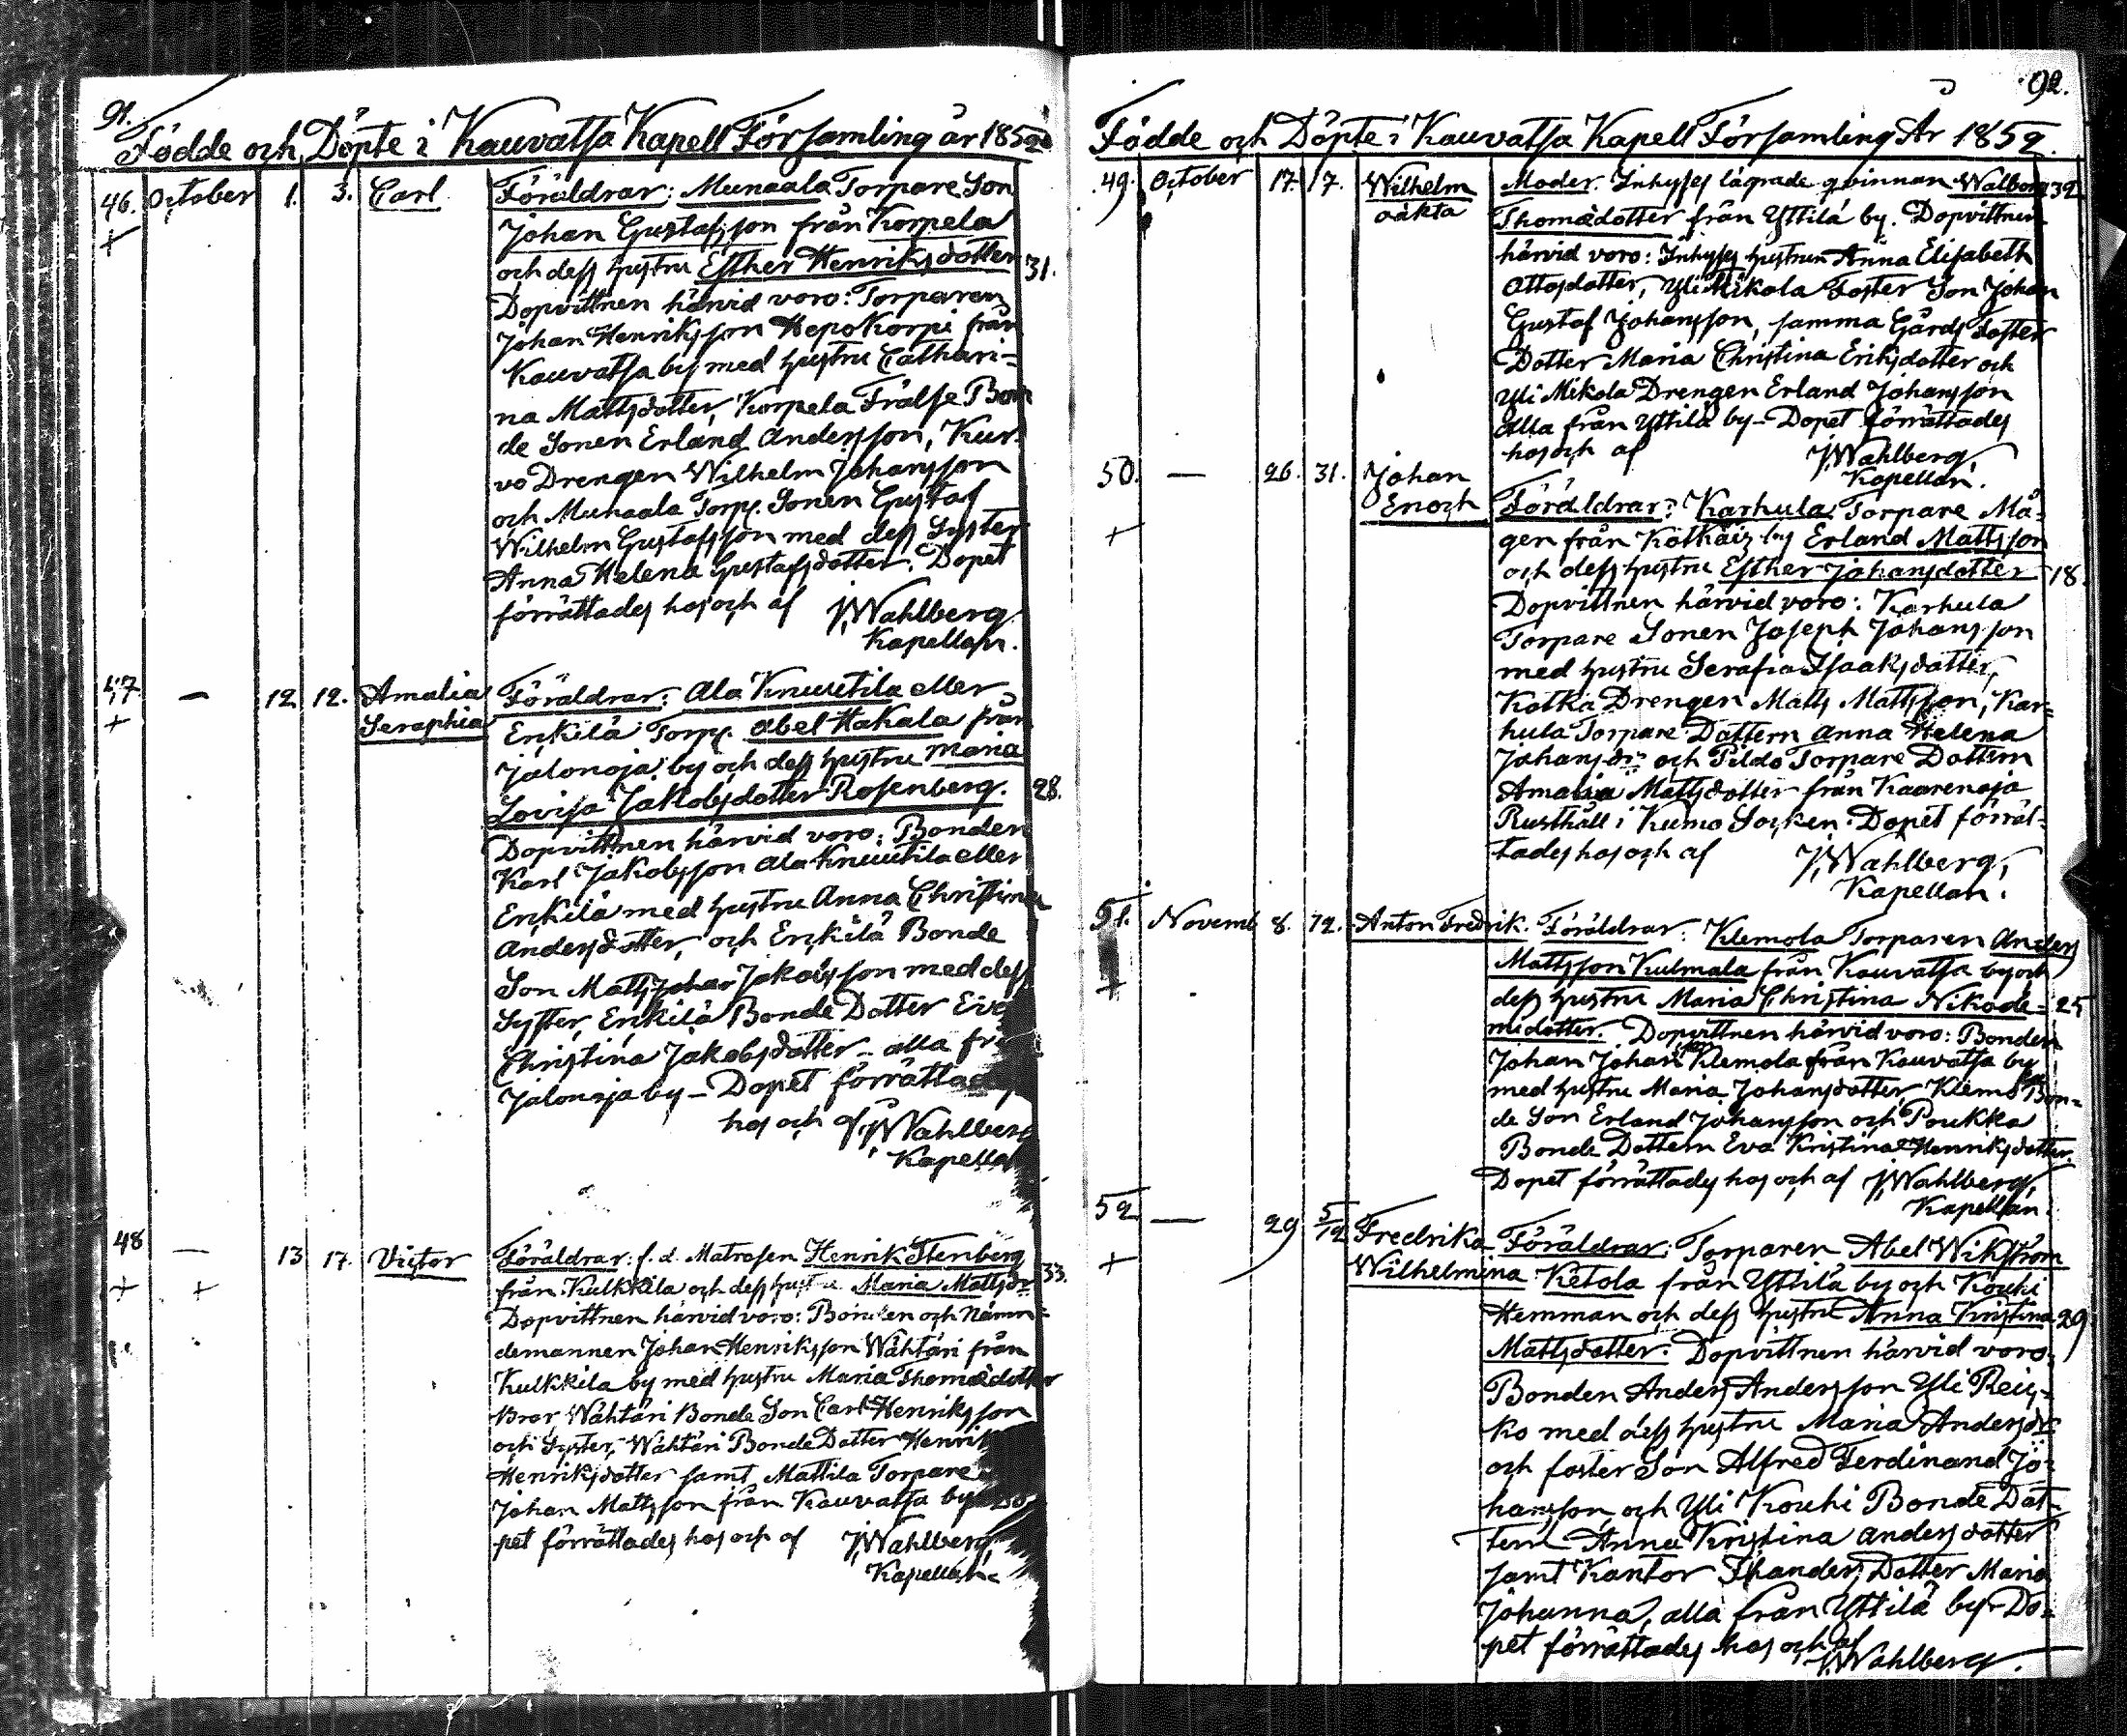 91.
Födde och Döpte i Kauvatsa Kapell Församling år 1852
46. October 1. 3. Carl Föräldrar: Munaala Torpare Son
+ Johan Gustafsson från Korpela
och dess hustru Esther Henriksdotter 31.
Dopvittnen härvid voro: Torparen
Johan Henriksson Hepokorpi från
Kauvatsa by med hustru Cathari-
na Mattsdotter, Korpela Frälse Bon
de Sonen Erland Andersson, Kur-
vo Drengen Wilhelm Johansson
och Munaala Torp. Sonen Gustaf
Wilhelm Gustafsson med dess Syster
Anna Helena Gustafsdotter. Dopet
förrättades has och af J. Wahlberg
Kapellan.
47 — 12 12. Amalia Föräldrar: Ala Knuutila eller
+ Seraphia Enkilä Torp. Abel Hakala från
Jalonoja by och dess hustru Maria
Lovisa Jakobsdotter Rosenberg. 28.
Dopvittnen härvid voro: Bonden
Karl Jakobsson Ala Knuutila eller
Enkilä med hustru Anna Christina
Andersdotter, och Enkilä Bonde
Son Matts Johan Jakobsson med dess
Syster, Enkilä Bonde Dotter Eva
Christina Jakobsdotter – alla fr
Jalonoja by – Dopet förrättades
hos och af J. Wahlberg
Kapella
48 — 13 17. Victor Föräldrar: f. d. Matrosen Henrik Stenberg
+ + från Kulkkila och dess hustru Maria Mattsdr 33.
Dopvittnen härvid voro: Bonden och Nämn-
demannen Johan Henriksson Wähtäri från
Kulkkila by med hustru Maria Thomædotter
Bror Wähtäri Bonde Son Carl Henriksson
och Syster, Wähtäri Bonde Dotter Henrik
Henriksdotter samt Mattila Torpare
Johan Mattsson från Kauvatsa by Do
pet förrättades hos och af J. Wahlberg
Kapellan.
92.
Födde och Döpte i Kauvatsa Kapell Församling År 1852.
49. October 17. 17. Wilhelm Moder. Inhyses lägrade qvinnan Walborg 39
oäkta Thomædotter från Yttilä by. Dopvittnen
härvid voro: Inhyses hustrun Anna Elisabeth
Ottosdotter, Yli Mikola Foster Son Johan
Gustaf Johansson, samma Gårds Foster
Dotter Maria Christina Eriksdotter och
Yli Mikola Drengen Erland Johansson
alla från Yttilä by – Dopet förrättades
hos och af J. Wahlberg,
Kapellan.
50. — 26. 31. Johan
Enoch Föräldrar: Karhula Torpare Må-
+ gen från Kotkais by Erland Mattsson
och dess hustru Esther Johansdotter 18.
Dopvittnen härvid voro: Karhula
Torpare Sonen Joseph Johansson
med hustru Serafia Isaaksdotter,
Kotka Drengen Matts Mattsson, Kar-
hula Torpare Dottern Anna Helena
Johansdr och Pildo Torpare Dottern
Amalia Mattsdotter från Kaarenoja
Rusthåll i Kumo Socken. Dopet förrät-
tades hos och af J. Wahlberg,
Kapellan.
51. Novemb 8. 12. Anton Fredrik. Föräldrar: Klemola Torparen Anders
+ Mattsson Kulmala från Kauvatsa by och
dess hustru Maria Christina Nikode- 25
midotter. Dopvittnen härvid voro: Bonden
Johan Johansson Klemola från Kauvatsa by
med hustru Maria Johansdotter, Klemola Bon-
de Son Erland Johansson och Poukka
Bonde Dottern Eva Kristina Henriksdotter.
Dopet förrättades hos och af J. Wahlberg,
Kapellan.
52 — 29 5/12 Fredrika Föräldrar: Torparen Abel Wikström
+ Wilhelmina Ketola från Yttilä by och Kouhi
Hemman och dess hustru Anna Kristina 29
Mattsdotter. Dopvittnen härvid voro:
Bonden Anders Andersson Yli Reis-
ko med dess hustru Maria Andersdr
och foster Son Alfred Ferdinand Jo-
hansson och Yli Kouhi Bonde Dot-
tern Anna Kristina Andersdotter
samt Kantor Thanders Dotter Maria
Johanna, alla från Yttilä by. Do-
pet förrättades hos och af
J. Wahlberg.